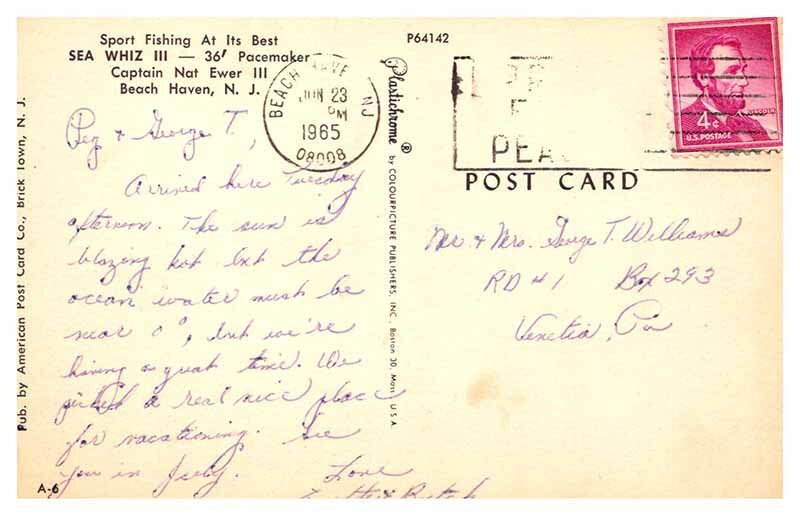 Sport Fishing At Its Best
SEA WHIZ III — 36' Pacemaker
Captain Nat Ewer III
Beach Haven, N. J.
P64142
BEACH HAVEN NJ
JUN 23
PM
1965
08008
4¢
LINCOLN
U.S. POSTAGE
POST CARD
Plastichrome ® by COLOURPICTURE PUBLISHERS, INC., Boston 30, Mass. U.S.A.
Pub. by American Post Card Co., Brick Town, N. J.
A-6
Peg & George T.,
Arrived here Tuesday
afternoon. The sun is
blazing hot but the
ocean water must be
near 0°, but we're
having a great time. We
picked a real nice place
for vacationing. See
you in July. Love
Butch
Mr. & Mrs. George T. Williams
RD #1 Box 293
Venetia, Pa